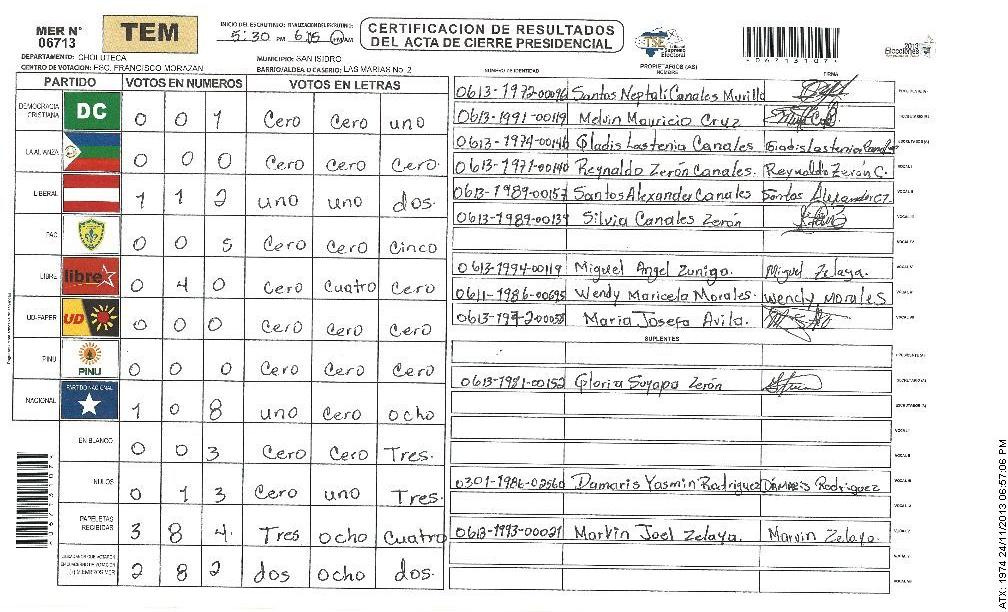 MER N° 06713
TEM
INICIO DEL ESCRUTINIO: FINALIZACION DEL ESCRUTINIO:
5:30 PM 6:05 AM
CERTIFICACION DE RESULTADOS
DEL ACTA DE CIERRE PRESIDENCIAL
TSE Tribunal Supremo Electoral
06713107
2013 Elecciones
DEPARTAMENTO: CHOLUTECA
MUNICIPIO: SAN ISIDRO
CENTRO DE VOTACION: ESC. FRANCISCO MORAZAN
BARRIO/ALDEA O CASERIO: LAS MARIAS No. 2
NÚMERO DE IDENTIDAD PROPIETARIOS (AS) NOMBRE FIRMA
PARTIDO VOTOS EN NUMEROS VOTOS EN LETRAS
DEMOCRACIA CRISTIANA DC 0 0 1 Cero Cero uno
LA ALIANZA 0 0 0 Cero Cero Cero.
LIBERAL 1 1 2 uno uno dos.
PAC 0 0 5 Cero Cero Cinco
LIBRE libre 0 4 0 Cero Cuatro Cero
UD-FAPER UD 0 0 0 Cero Cero Cero
PINU PINU 0 0 0 Cero Cero Cero
NACIONAL PARTIDO NACIONAL 1 0 8 uno Cero ocho
EN BLANCO 0 0 3 Cero Cero Tres.
NULOS 0 1 3 Cero uno Tres.
PAPELETAS RECIBIDAS 3 8 4. Tres ocho Cuatro
2 8 2 dos ocho dos.
0613-1972-00096 Santos Neptali Canales Murillo
0613-1991-00119 Melvin Mauricio Cruz
0613-1974-00146 Gladis Lastenia Canales Gladis Lastenia Canales
0613-1971-00140 Reynaldo Zerón Canales. Reynaldo Zerón C.
0613-1989-00157 Santos Alexander Canales Santos Alexander
0613-1989-00139 Silvia Canales Zerón
0613-1994-00119 Miguel Angel Zuniga. Miguel Zelaya.
0611-1986-00695 Wendy Maricela Morales. Wendy Morales
0613-1972-00058 Maria Josefa Avila.
SUPLENTES
0613-1981-00152 Gloria Suyapa Zerón
0301-1986-02560 Damaris Yasmin Rodriguez Damaris Rodriguez
0613-1993-00021 Marvin Joel Zelaya. Marvin Zelaya
ATX: 1974 24/11/2013 06:57:06 PM